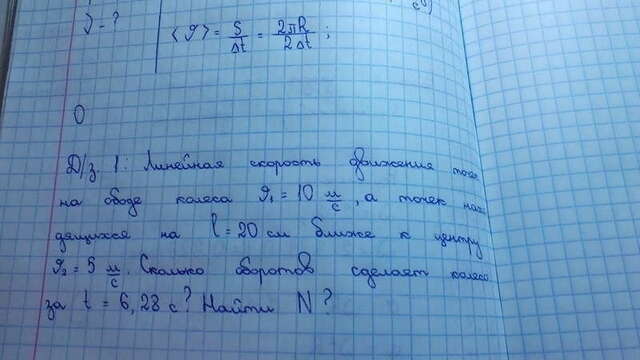 ϑ - ?
<ϑ> = S/Δt = 2πR/2Δt ;
Д/з. 1: Линейная скорость движения точек
на ободе колеса ϑ₁ = 10 м/с, а точек нахо
дящихся на l = 20 см ближе к центру
ϑ₂ = 5 м/с. Сколько оборотов сделает колесо
за t = 6,28 с? Найти N?